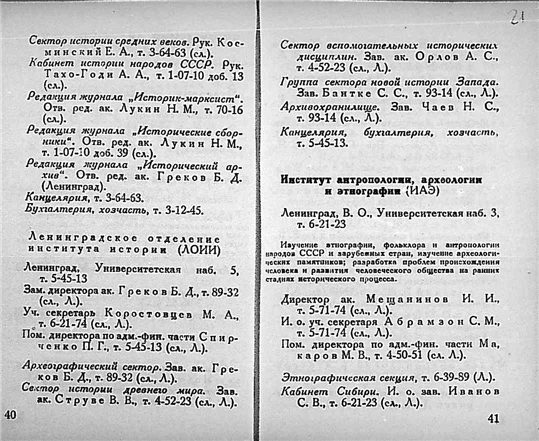 Сектор истории средних веков. Рук. Кос-
минский Е. А., т. 3-64-63 (сл.).
Кабинет истории народов СССР. Рук.
Тахо-Годи А. А., т. 1-07-10 доб. 13
(сл.).
Редакция журнала „Историк-марксист".
Отв. ред. ак. Лукин Н. М., т. 70-16
(сл.).
Редакция журнала „Исторические сбор-
ники". Отв. ред. ак. Лукин Н. М.,
т. 1-07-10 доб. 39 (сл.).
Редакция журнала „Исторический ар-
хив". Отв. ред. ак. Греков Б. Д.
(Ленинград).
Канцелярия, т. 3-64-63.
Бухгалтерия, хозчасть, т. 3-12-45.
Ленинградское отделение
института истории (ЛОИИ)
Ленинград, Университетская наб. 5,
т. 5-45-13
Зам. директора ак. Греков Б. Д., т. 89-32
(сл., Л.).
Уч. секретарь Коростовцев М. А.,
т. 6-21-74 (сл., Л.).
Пом. директора по адм.-фин. части Спир-
ченко П. Г., т. 5-45-13 (сл., Л.).
Археографический сектор. Зав. ак. Гре-
ков Б. Д., т. 89-32 (сл., Л.).
Сектор истории древнего мира. Зав.
ак. Струве В. В., т. 4-52-23 (сл., Л.).
40
21
Сектор вспомогательных исторических
дисциплин. Зав. ак. Орлов А. С.,
т. 4-52-23 (сл., Л.).
Группа сектора новой истории Запада.
Зав. Бантке С. С., т. 93-14 (сл., Л.).
Архивохранилище. Зав. Чаев Н. С.,
т. 93-14 (сл., Л.).
Канцелярия, бухгалтерия, хозчасть,
т. 5-45-13.
Институт антропологии, археологии
и этнографии (ИАЭ)
Ленинград, В. О., Университетская наб. 3,
т. 6-21-23
Изучение этнографии, фольклора и антропологии
народов СССР и зарубежных стран, изучение археологи-
ческих памятников; разработка проблем происхождения
человека и развития человеческого общества на ранних
стадиях исторического процесса.
Директор ак. Мещанинов И. И.,
т. 5-71-74 (сл., Л.).
И. о. уч. секретаря Абрамзон С. М.,
т. 5-71-74 (сл., Л.).
Пом. директора по адм.-фин. части Ма,
каров М. В., т. 4-50-51 (сл., Л.).
Этнографическая секция, т. 6-39-89 (Л.).
Кабинет Сибири. И. о. зав. Иванов
С. В., т. 6-21-23 (сл., Л.).
41